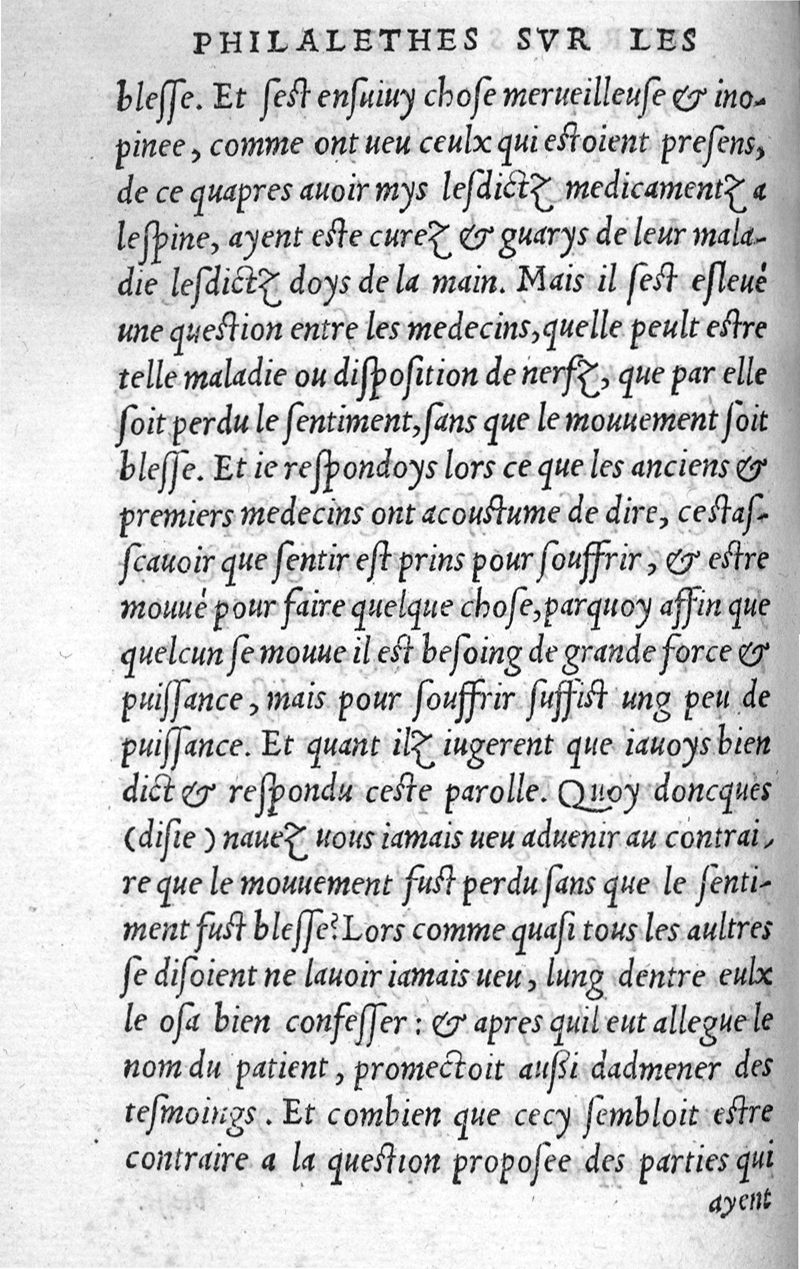 PHILALETHES SVR LES
blesſe. Et ſest enſuiuy choſe merueilleuſe & ino-
pinee, comme ont ueu ceulx qui estoient preſens,
de ce quapres auoir mys leſdictz medicamentz a
leſpine, ayent este curez & guarys de leur mala-
die leſdictz doys de la main. Mais il ſest eſleué
une question entre les medecins, quelle peult estre
telle maladie ou diſpoſition de nerfz, que par elle
ſoit perdu le ſentiment, ſans que le mouuement ſoit
bleſſe. Et ie reſpondoys lors ce que les anciens &
premiers medecins ont acoustume de dire, cestaſ-
ſcauoir que ſentir est prins pour ſouffrir, & estre
mouué pour faire quelque choſe, parquoy affin que
quelcun ſe mouue il est beſoing de grande force &
puiſſance, mais pour ſouffrir ſuffist ung peu de
puiſſance. Et quant ilz iugerent que iauoys bien
dict & reſpondu ceste parolle. Quoy doncques
(diſie) nauez uous iamais ueu aduenir au contrai-
re que le mouuement fust perdu ſans que le ſenti-
ment fust bleſſe? Lors comme quaſi tous les aultres
ſe diſoient ne lauoir iamais ueu, lung dentre eulx
le oſa bien confeſſer : & apres quil eut allegue le
nom du patient, promectoit außi dadmener des
teſmoings. Et combien que cecy ſembloit estre
contraire a la question propoſee des parties qui
ayent